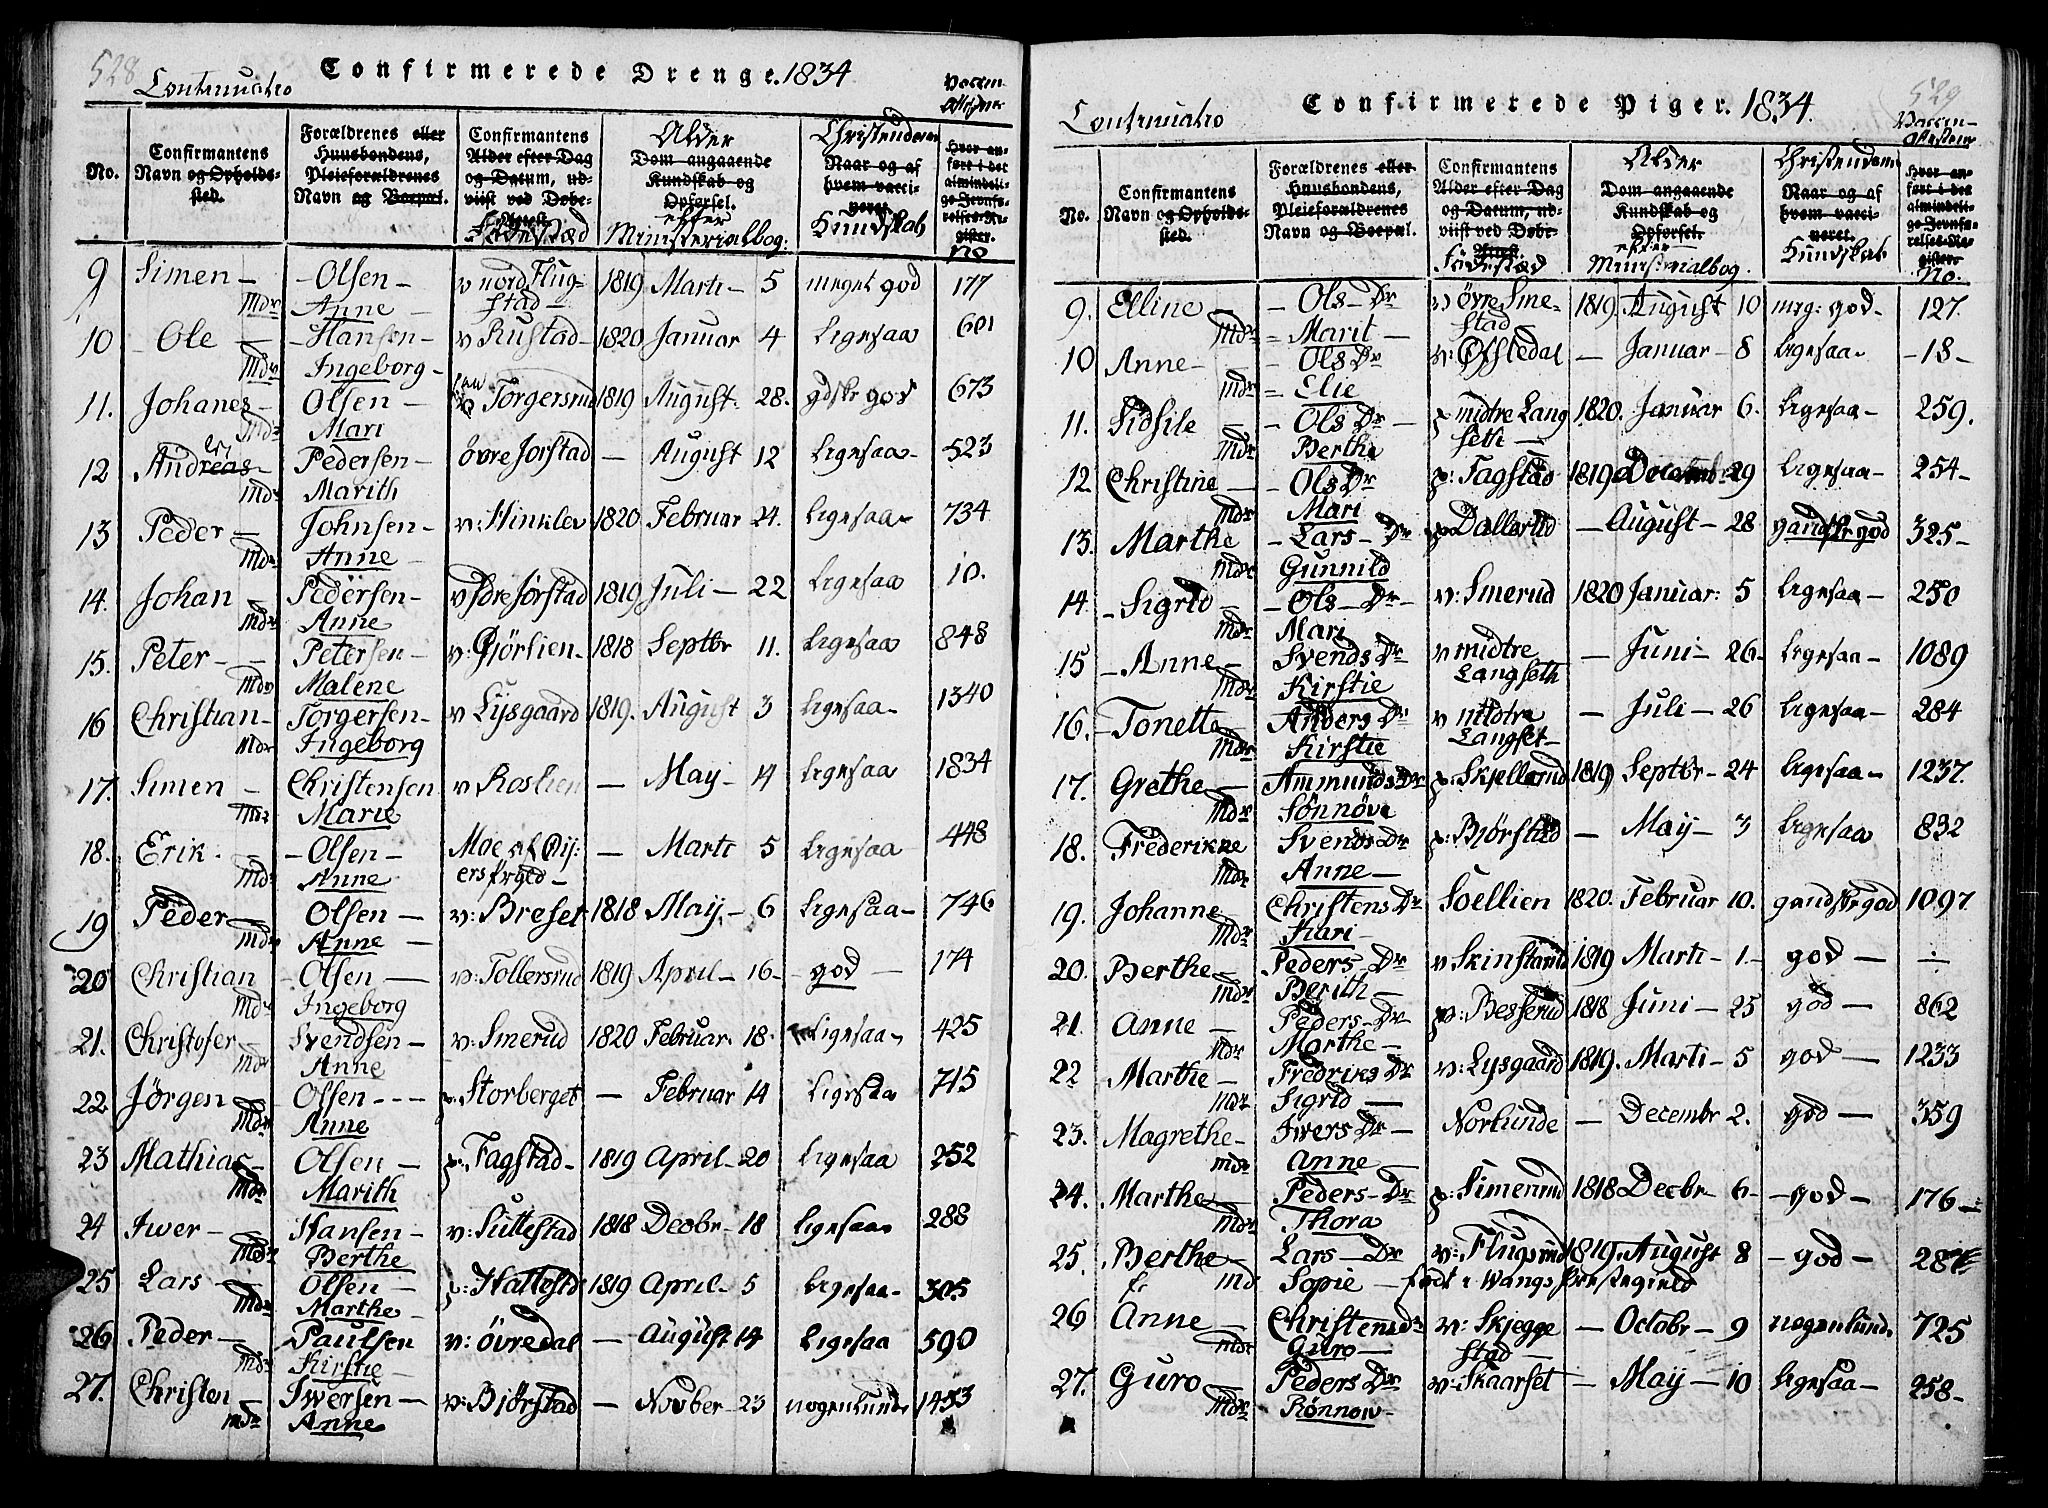 528
Continuatio
Confirmerede Drenge. 1834
No.
Confirmantens Navn og Opholdssted.
Forældrenes eller Huusbondens, Pleieforældrenes Navn og Boepæl.
Confirmantens Alder efter Dag og Datum, udviist ved Døbe-Attest. Födestæd
Alder Dom angaaende Kundskab og Opførsel. efter Ministerialbog:
Christendoms Naar og af hvem vaccineret. Kundskab
Hvor anført i det almindelige Jevnførelses-Register. No
9 Simen — — Olsen — v nord Flug- 1819 Marti — 5 meget god 177
Mdr Anne — stad —
10 — Ole — — Hansen — v Rustad — 1820 Januar 4 ligesaa 601
Mdr Ingeborg —
11. Johanes — Olsen — Torgersrud 1819 August 28. gdske god 673
Mdr Mari
12 Andreas — Pedersen — övre Jorstad — August 12 ligesaa — 523
Mdr Marith
13 Peder — Johnsen — v: Hinklev 1820 Februar 24. ligesaa — 734
Mdr Anne —
14. Johan Pedersen — v Jdre Jørstad 1819 Juli — 22 ligesaa 10.
Mdr Anne
15. Peter — — Petersen — v: Gjörlien — 1818 Septbr 11. ligesaa 848
Mdr Malene
16 Christian — Torgersen — v Lysgaard 1819. August 3 ligesaa — 1340
Mdr Ingeborg
17. Simen — Christensen v Roslien — May — 14 ligesaa 1834
Mdr Marie
18. Erik. — Olsen — Moe — Marti 5 ligesaa — 448
Mdr Anne
19 Peder — Olsen — v: Breset 1818 May — 6 ligesaa — 746
Mdr Anne —
20 Christian Olsen — v: Tollersrud 1819 April — 16 — god — 174
Mdr Ingeborg
21. Christofer — Svendsen — v: Smerud 1820 Februar 18. ligesaa — 425
Mdr Anne
22 Jörgen Olsen — — — v. Storberget — Februar 14 ligesaa 715
Mdr Anne
23 Mathias — Olsen — p: Fagstad — 1819 April — 20 ligesaa 252
Mdr Marith
24 Iwer — Hansen — v: Suttestad 1818 Decbr — 18 ligesaa 288
Mdr Berthe
25 Lars — Olsen — p: Hattestd 1819 April — 5 ligesaa — 305
Mdr Marthe —
26 Peder — Paulsen v: övredal — August 14 ligesaa 590
Mdr Kirstie —
27. Christen — Iwersen — v: Bjørstad — Novber — 23 nogenlunde 1453
mdr Anne
529
Continuatio
Confirmerede Piger. 1834.
No.
Confirmantens Navn og Opholdssted.
Forældrenes eller Huusbondens, Pleieforældrenes Navn og Boepæl.
Confirmantens Alder efter Dag og Datum, udviist ved Døbe-Attest. Födestæd
Alder Dom angaaende Kundskab og Opførsel. efter Ministerialbog.
Christendoms Naar og af hvem vaccineret. Kundskab
Hvor anført i det almindelige Jevnførelses-Register. No.
9. Elline — Ols — Dr v övre Sme- 1819 August 10 meg: god — 127.
Mdr = Marit — stad —
10 Anne — — Ols Dr v: Öfstedal — Januar — 8 ligesaa — — 18 —
Mdr = Elie
11. Sidsile — — Ols Dr — p midtre Lang 1820. Januar 6. ligesaa — 259.
Mdr Berthe seth —
12 Christine — — Ols Dr p: Fagstad 1819 Decembr 29 ligesaa — 254 —
Mdr Mari
13. Marthe — Lars — Dr Dallerud — August — 28 gandske god 325 —
Mdr Gunnild
14 — Sigrid — — Ols — Dr — v: Smerud 1820 Januar: 5 ligesaa — 250
Mdr Mari
15 — Anne — Svends Dr v midtre — Juni — 26 — ligesaa — 1089
Mdr Kirstie Langseth
16. — Tonette Anders Dr v midtre — Juli — 26 ligesaa — 284
Mdr Kirstie Langset —
17. Grethe — Ammunds Dr p: Skjellerud 1819 Septbr — 24 ligesaa — 1237.
Mdr Sönnöve
18. Frederikne Svends Dr p: Bjørstad — May — 3 ligesaa 832
Mdr Anne —
19. Johanne Christens Dr Soellien 1820. Februar 10. gandske god 1097
Mdr Kari —
20. Berthe — Peders — Dr v Skinstarud 1819 Marti — 1 — god —
Mdr Berith —
21. Anne — Peders — Dr v: Besserud 1818 Juni — 25 god — 862
Mdr Marthe —
22 Marthe — Fredriks Dr v: Lysgaard 1819. Marti — 5 god — 1233
Mdr Sigrid —
23. Magrethe — Iwers Dr — Norlunde — Decembr 2. god — 359
mdr Anne —
24. Marthe — Peders — Dr p: Simenrud 1818 Decbr — 6 — — god — 176 —
Mdr Thora
25. Berthe — Lars — Dr v: Flugsrud 1819. August 8 — god — 287
Md Sopie — födt i Wangs Præstegield
26 Anne — Christensdr v: Skjegge — Octobr — 9 nogenlunde 725
Mdr Guro — stad —
27. Guro — Peders Dr v: Skaarset — May — 10 ligesaa — 258 —
Mdr Rönnow